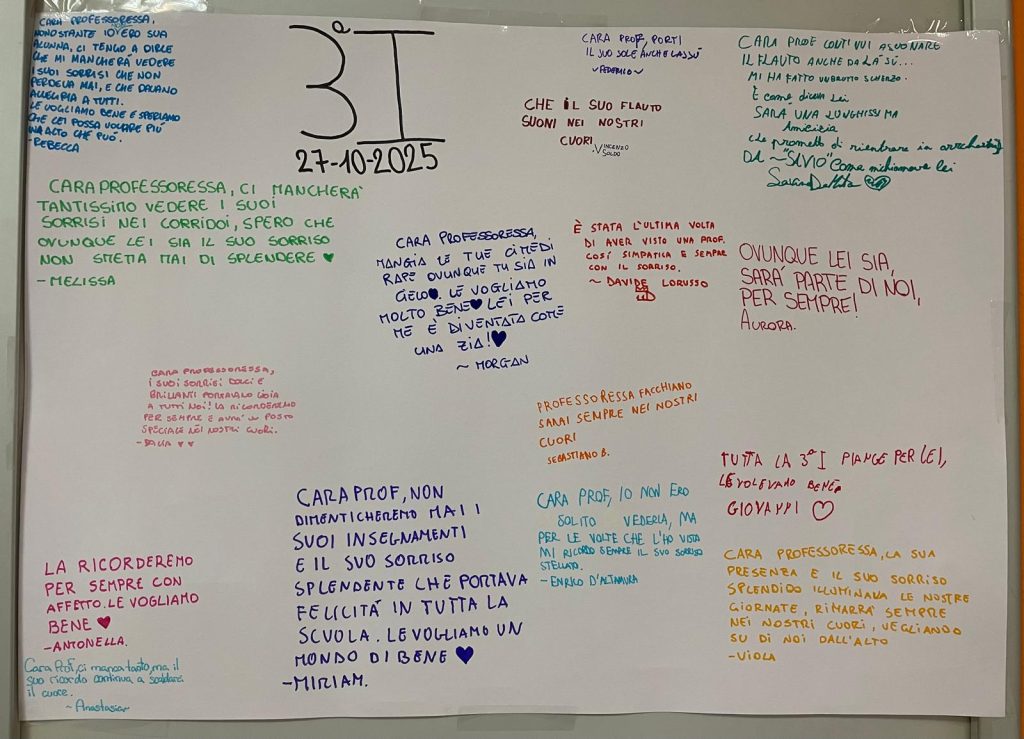 CARA PROFESSORESSA,
NONOSTANTE IO ERO SUA
ALUNNA, CI TENGO A DIRLE
CHE MI MANCHERÀ VEDERE
I SUOI SORRISI CHE NON
PERDEVA MAI, E CHE DAVANO
ALLEGRIA A TUTTI.
LE VOGLIAMO BENE E SPERIAMO
CHE LEI POSSA VOLARE PIÙ
IN ALTO CHE PUÒ.
-REBECCA
3ª I
27-10-2025
CARA PROF, PORTI
IL SUO SOLE ANCHE LASSÚ
~FEDERICO~
CHE IL SUO FLAUTO
SUONI NEI NOSTRI
CUORI.
VINCENZO
SOLDO
CARA PROF CONTINUI A SUONARE
IL FLAUTO ANCHE DA LÀ SÙ...
MI HA FATTO UN BRUTTO SCHERZO.
È come diceva lei
SARÀ UNA LUNGHISSIMA
Amicizia
che prometto di rientrare in
DA ~"SAVIO" come mi chiamava lei
CARA PROFESSORESSA, CI MANCHERÀ
TANTISSIMO VEDERE I SUOI
SORRISI NEI CORRIDOI, SPERO CHE
OVUNQUE LEI SIA IL SUO SORRISO
NON SMETTA MAI DI SPLENDERE ♥
-MELISSA
CARA PROFESSORESSA,
MANGIA LE TUE CIME DI
RAPE OVUNQUE TU SIA IN
CIELO♥. LE VOGLIAMO
MOLTO BENE♥ LEI PER
ME È DIVENTATA COME
UNA ZIA!♥
~ MORGAN
È STATA L'ULTIMA VOLTA
DI AVER VISTO UNA PROF.
COSÍ SIMPATICA E SEMPRE
CON IL SORRISO.
~ DAVIDE LORUSSO
OVUNQUE LEI SIA,
SARÀ PARTE DI NOI,
PER SEMPRE!
AURORA.
CARA PROFESSORESSA,
I SUOI SORRISI DOLCI E
BRILLANTI PORTAVANO GIOIA
A TUTTI NOI! LA RICORDEREMO
PER SEMPRE E AVRÀ UN POSTO
SPECIALE NEI NOSTRI CUORI.
-DALIA ♥ ♥
PROFESSORESSA FACCHIANO
SARAI SEMPRE NEI NOSTRI
CUORI
SEBASTIANO B.
TUTTA LA 3ª I PIANGE PER LEI,
LE VOLEVAMO BENE.
GIOVANNI ♡
CARA PROF, NON
DIMENTICHEREMO MAI I
SUOI INSEGNAMENTI
E IL SUO SORRISO
SPLENDENTE CHE PORTAVA
FELICITÀ IN TUTTA LA
SCUOLA. LE VOGLIAMO UN
MONDO DI BENE ♥
-MIRIAM.
CARA PROF, IO NON ERO
SOLITO VEDERLA, MA
PER LE VOLTE CHE L'HO VISTA
MI RICORDO SEMPRE IL SUO SORRISO
STELLATO.
-ENRICO D'ALTAMURA
CARA PROFESSORESSA, LA SUA
PRESENZA E IL SUO SORRISO
SPLENDIDO ILLUMINAVA LE NOSTRE
GIORNATE, RIMARRÀ SEMPRE
NEI NOSTRI CUORI, VEGLIANDO
SU DI NOI DALL'ALTO
-VIOLA
LA RICORDEREMO
PER SEMPRE CON
AFFETTO. LE VOGLIAMO
BENE ♥
-ANTONELLA.
Cara Prof, ci manca tanto, ma il
suo ricordo continua a scaldarci
il cuore.
~Anastasia